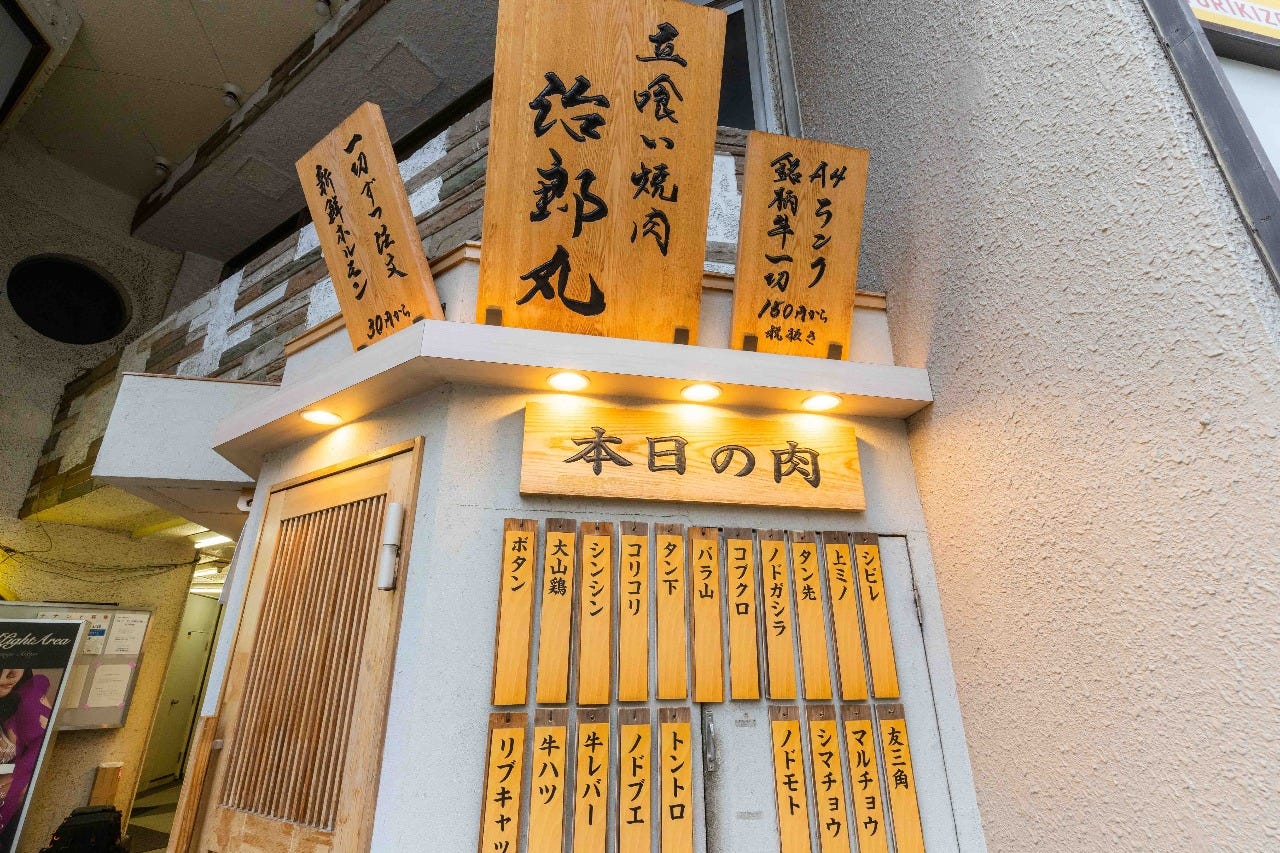 立喰い焼肉
治郎丸
一切ずつ注文
新鮮ホルモン
30円から
A4ランク
銘柄牛一切
150円から
税抜き
本日の肉
シビレ
上ミノ
タン先
ノドガシラ
コブクロ
バラ山
タン下
コリコリ
シンシン
大山鶏
ボタン
友三角
マルチョウ
シマチョウ
ノドモト
トントロ
ノドブエ
牛レバー
牛ハツ
リブキャッ
LightArea